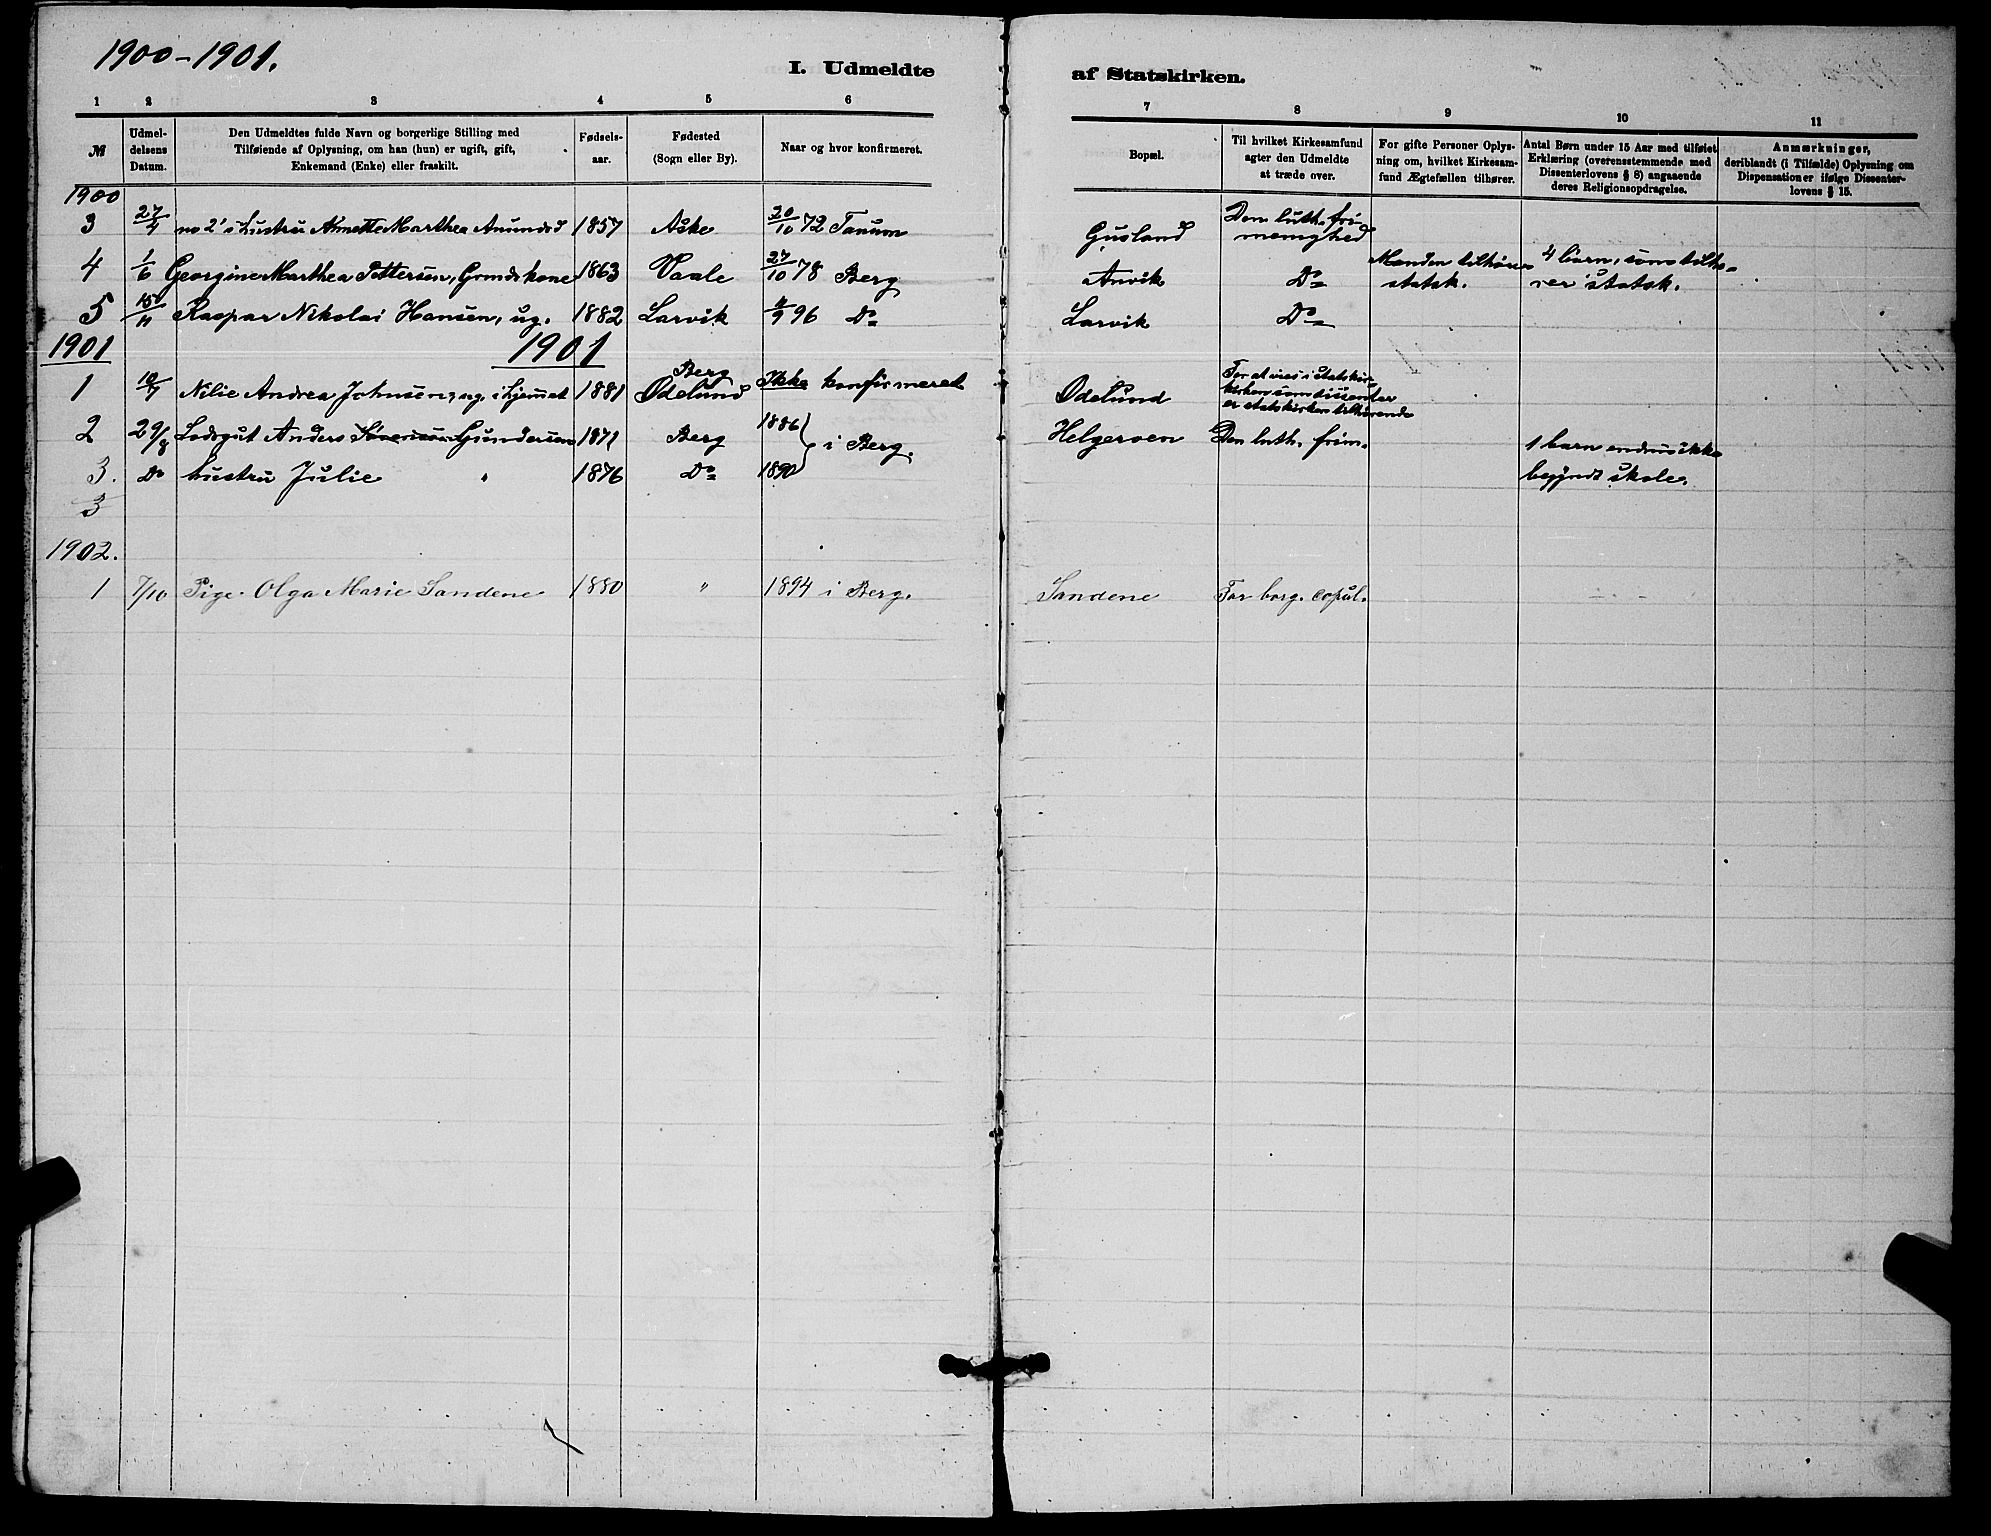 1900-1901.
I. Udmeldte af Statskirken.
1 2 3 4 5 6 7 8 9 10 11
№
Udmel-
delsens
Datum.
Den Udmeldtes fulde Navn og borgerlige Stilling med
Tilføiende af Oplysning, om han (hun) er ugift, gift,
Enkemand (Enke) eller fraskilt.
Fødsels-
aar.
Fødested
(Sogn eller By).
Naar og hvor konfirmeret.
Bopæl.
Til hvilket Kirkesamfund
agter den Udmeldte
at træde over.
For gifte Personer Oplys-
ning om, hvilket Kirkesam-
fund Ægtefællen tilhører.
Antal Børn under 15 Aar med tilføiet
Erklæring (overensstemmende med
Dissenterlovens § 8) angaaende
deres Religionsopdragelse.
Anmærkninger,
deriblandt (i Tilfælde) Oplysning om
Dispensationer ifølge Dissenter-
lovens § 15.
1900
3 27/4 no 2's hustru Annette Marthea Amundsd 1857 Aske 20/10 72 Tanum Gusland Den luth. fri-
menighed
4 1/6 Georgine Marthea Pettersen, Grmdskone 1863 Vaale 27/10 78 Berg Anvik Do Manden tilhører
statsk. 4 barn, som tilhø-
rer statsk.
5 15/11 Kaspar Nikolai Hansen, ug. 1882 Larvik 4/9 96 Do Larvik Do
1901 1901
1 10/7 Nilie Andrea Johnsen, ug. i hjemmet 1881 Berg
Ødelund Ikke konfirmeret Ødelund For at vies i statskir-
kirken som dissenter
er statskirken tilhørende
2 29/8 Lodsgut Anders Gundersen 1871 Berg 1886 i Berg. Helgeroen Den luth. frim. 1 barn endnu ikke
3. Do hustru Julie " 1876 Do 1890 begyndt skole.
3
1902.
1 7/10 Pige Olga Marie Sandene 1880 " 1894 i Berg. Sandene For borg. copul. - . -